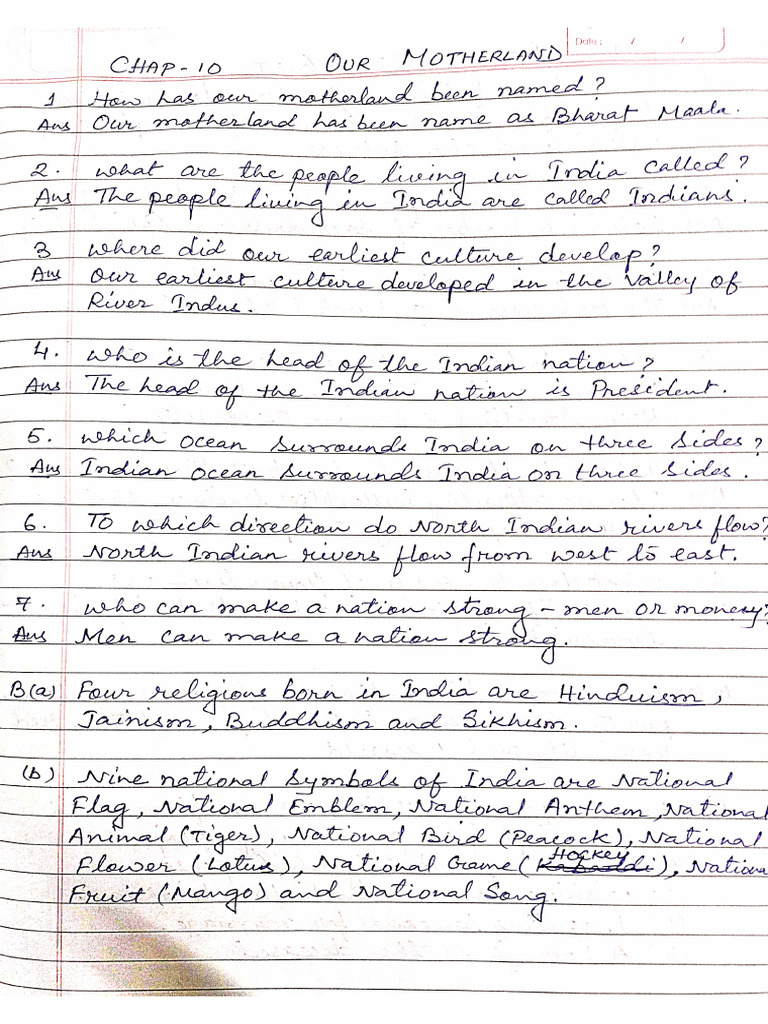 Date: / /
CHAP-10 OUR MOTHERLAND
1 How has our motherland been named?
Ans Our motherland has been name as Bharat Maata.
2. what are the people living in India called?
Ans The people living in India are called Indians.
3 where did our earliest culture develop?
Ans Our earliest culture developed in the valley of
River Indus.
4. who is the head of the Indian nation?
Ans The head of the Indian nation is President.
5. which ocean surrounds India on three sides?
Ans Indian ocean surrounds India on three sides.
6. To which direction do North Indian rivers flow?
Ans North Indian rivers flow from west to east.
7. who can make a nation strong - men or money?
Ans Men can make a nation strong.
B(a) Four religious born in India are Hinduism,
Jainism, Buddhism and Sikhism.
(b) Nine national symbols of India are National
Flag, National Emblem, National Anthem, National
Animal (Tiger), National Bird (Peacock), National
Hockey
Flower (Lotus), National Game (Kabaddi), Nationa
Fruit (Mango) and National Song.